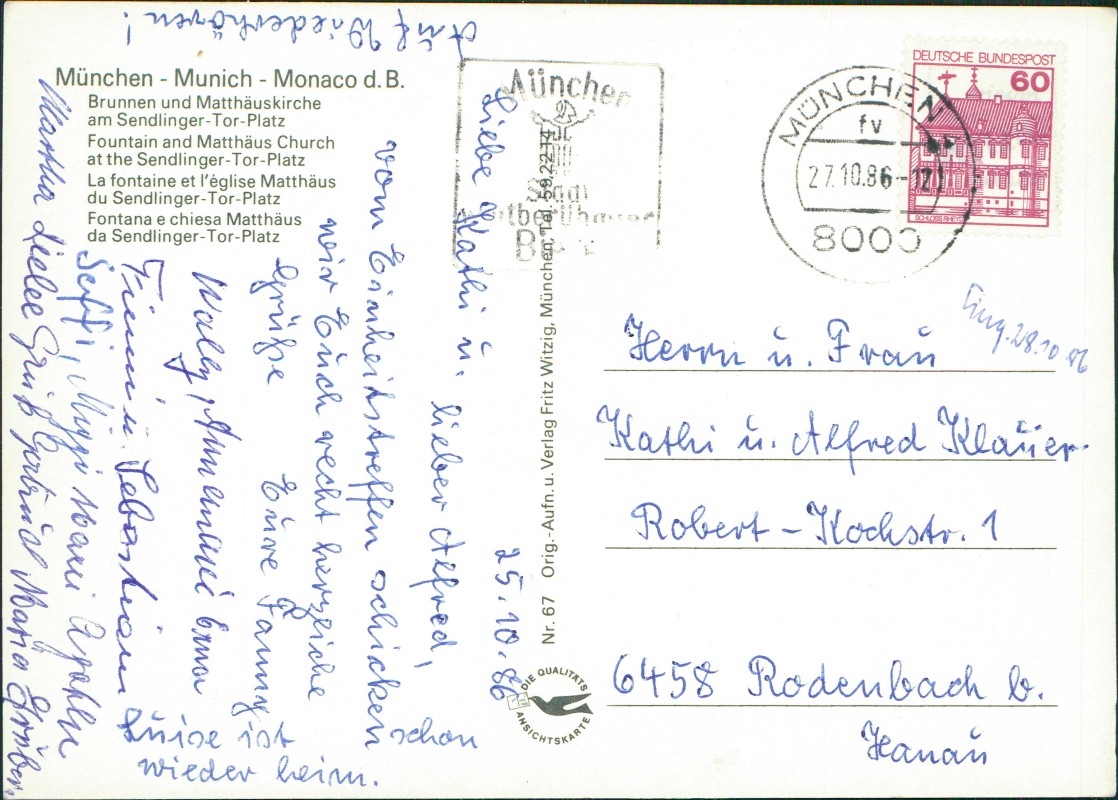 Auf Wiederhören!
München - Munich - Monaco d. B.
Brunnen und Matthäuskirche
am Sendlinger-Tor-Platz
Fountain and Matthäus Church
at the Sendlinger-Tor-Platz
La fontaine et l'église Matthäus
du Sendlinger-Tor-Platz
Fontana e chiesa Matthäus
da Sendlinger-Tor-Platz
25.10.86
Liebe Kathi u. lieber Alfred,
vom Einheitstreffen schicken
wir Euch recht herzliche
Grüße Eure Fanny
Wally, Annemie Erna
Fini u. Sebastian
Seffi, Miggi Mari Agathe
Martha Liebe Grüß Gertrud Maria Gruber
Luise ist schon
wieder heim.
Nr. 67 Orig.-Aufn. u. Verlag Fritz Witzig, München, Tel. 59 22 14
DIE QUALITÄTS
ANSICHTSKARTE
München
Stadt
DEUTSCHE BUNDESPOST
60
SCHLOSS RHEYDT
MÜNCHEN
fv
27.10.86-17
8000
Eing. 28.10 86
Herrn u. Frau
Kathi u. Alfred Klauer
Robert-Kochstr. 1
6458 Rodenbach b.
Hanau